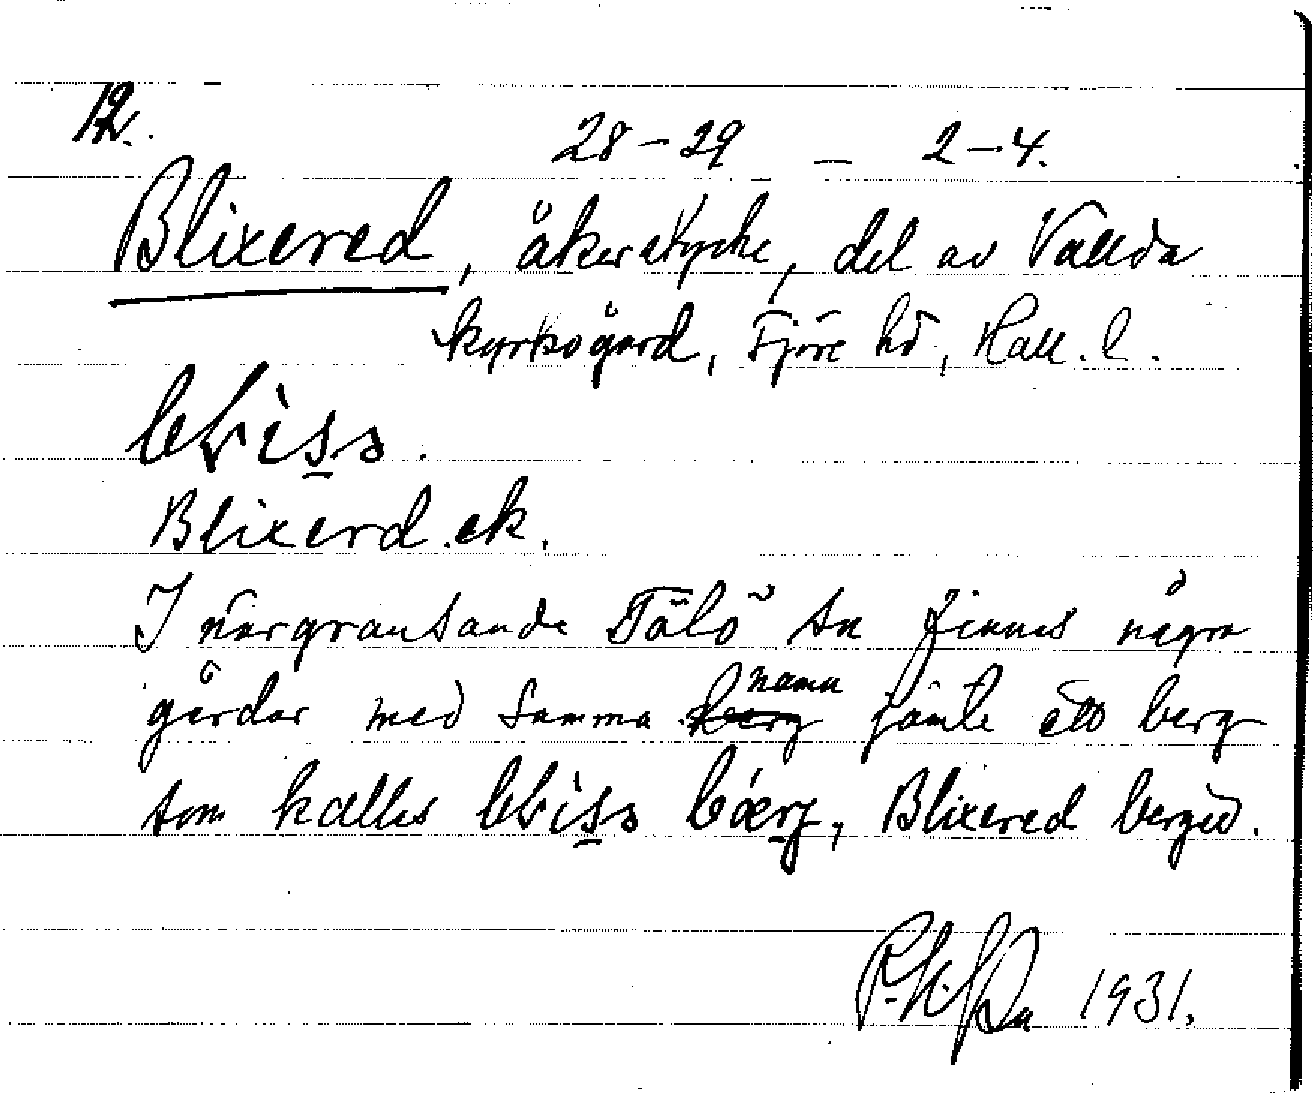 12.
28-29 - 2-4.
Blixered, åkerstycke, del av Vallda
kyrkogård, Fjäre hd, Hall. l.
Blixerd.ek.
I närgränsande Tölö sn finnes några
gårdar med samma namn jämte ett berg
som kallas, Blixered berget.
1931.